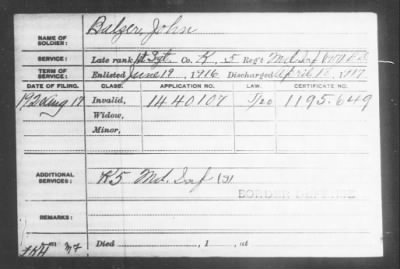 NAME OF SOLDIER: Balzer, John
SERVICE: Late rank 1st Sgt. Co. K, 5 Reg't Md. Inf
TERM OF SERVICE: Enlisted June 19, 1916 Discharged April 16, 1917.
DATE OF FILING. CLASS. APPLICATION NO. LAW. CERTIFICATE NO.
1920 Aug 17 Invalid, 1440107 1195.649
Widow,
Minor,
ADDITIONAL SERVICES: K5 Md. Inf
BORDER DEFENSE
REMARKS:
Died , 1 , at